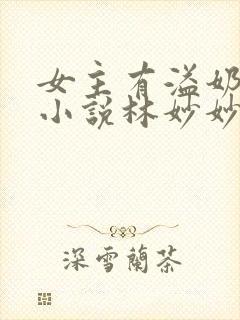 女主有溢奶
小說林妙妙
深雪蘭茶